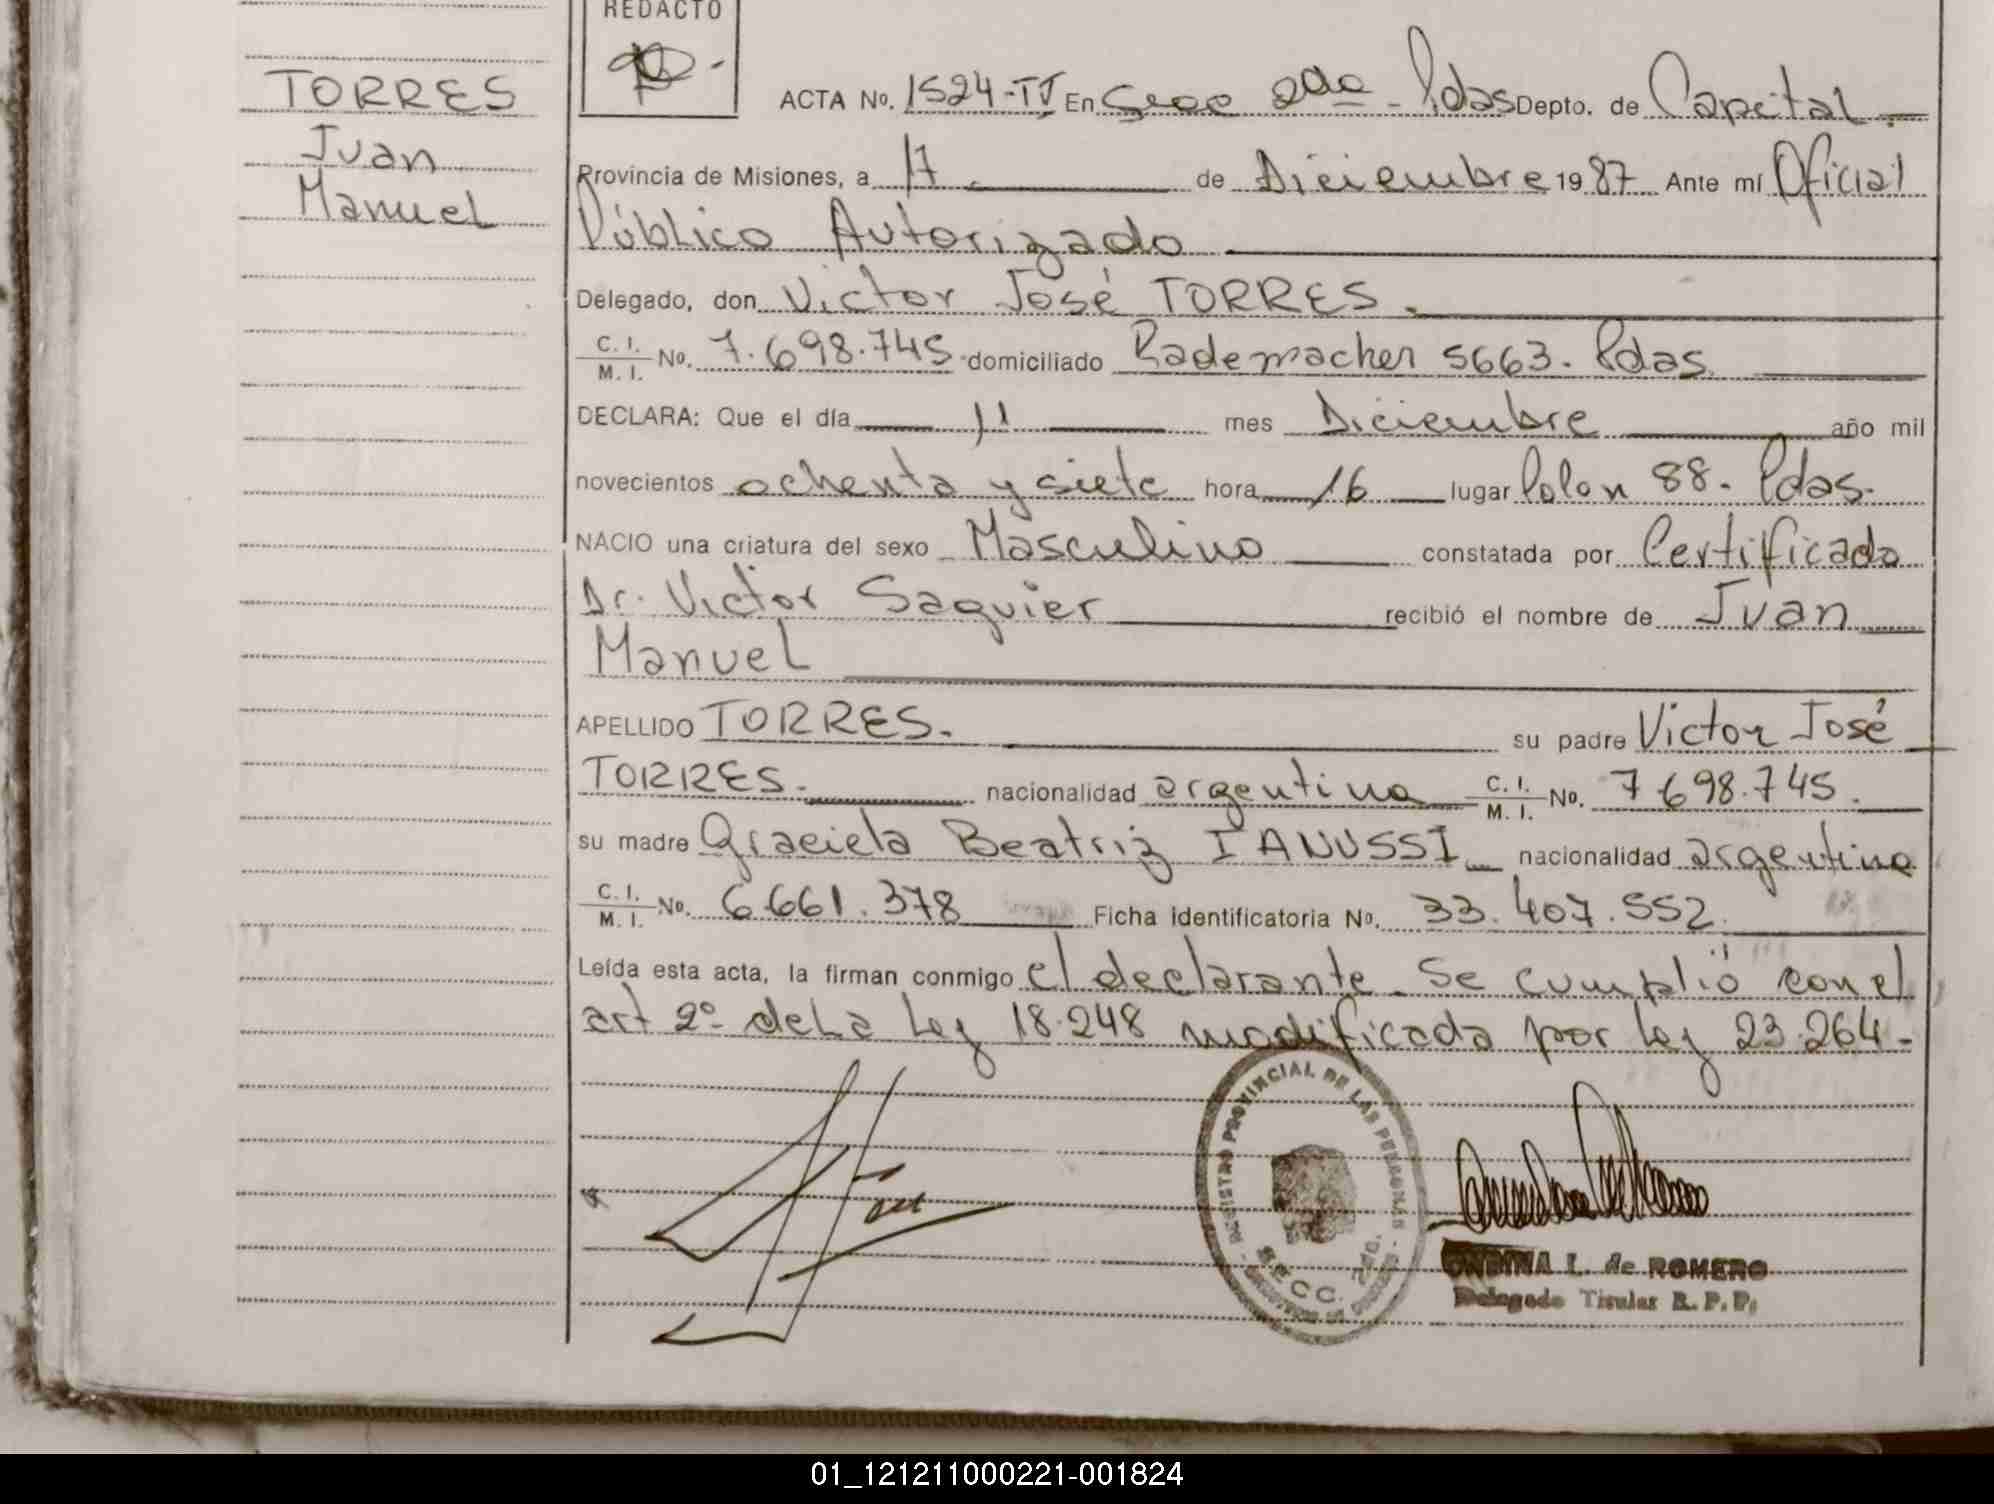 REDACTO
TORRES
Juan
Manuel
ACTA No. 1524-TJ En Secc 2da - Pdas Depto. de Capital.
Provincia de Misiones, a 17 de Diciembre 1987 Ante mí Oficial
Público Autorizado
Delegado, don Victor José TORRES.
C. I. / M. I. No. 7.698.745 domiciliado Rademacher 5663. Pdas
DECLARA: Que el día 11 mes Diciembre año mil
novecientos ochenta y siete hora 16 lugar Colon 88. Pdas.
NACIO una criatura del sexo Masculino constatada por Certificado
Dr. Victor Saguier recibió el nombre de Juan
Manuel
APELLIDO TORRES. su padre Victor José
TORRES. nacionalidad argentina C. I. / M. I. No. 7698.745.
su madre Graciela Beatriz IANUSSI nacionalidad argentina
C. I. / M. I. No. 6.661.378 Ficha identificatoria No. 33.407.552.
Leída esta acta, la firman conmigo el declarante. Se cumplió con el
art 2º de La Ley 18.248 modificada por ley 23.264.-
REGISTRO PROVINCIAL DE LAS PERSONAS
SECC. 2da.
ONDINA L. de ROMERO
Delegado Titular R. P. P.
01_121211000221-001824